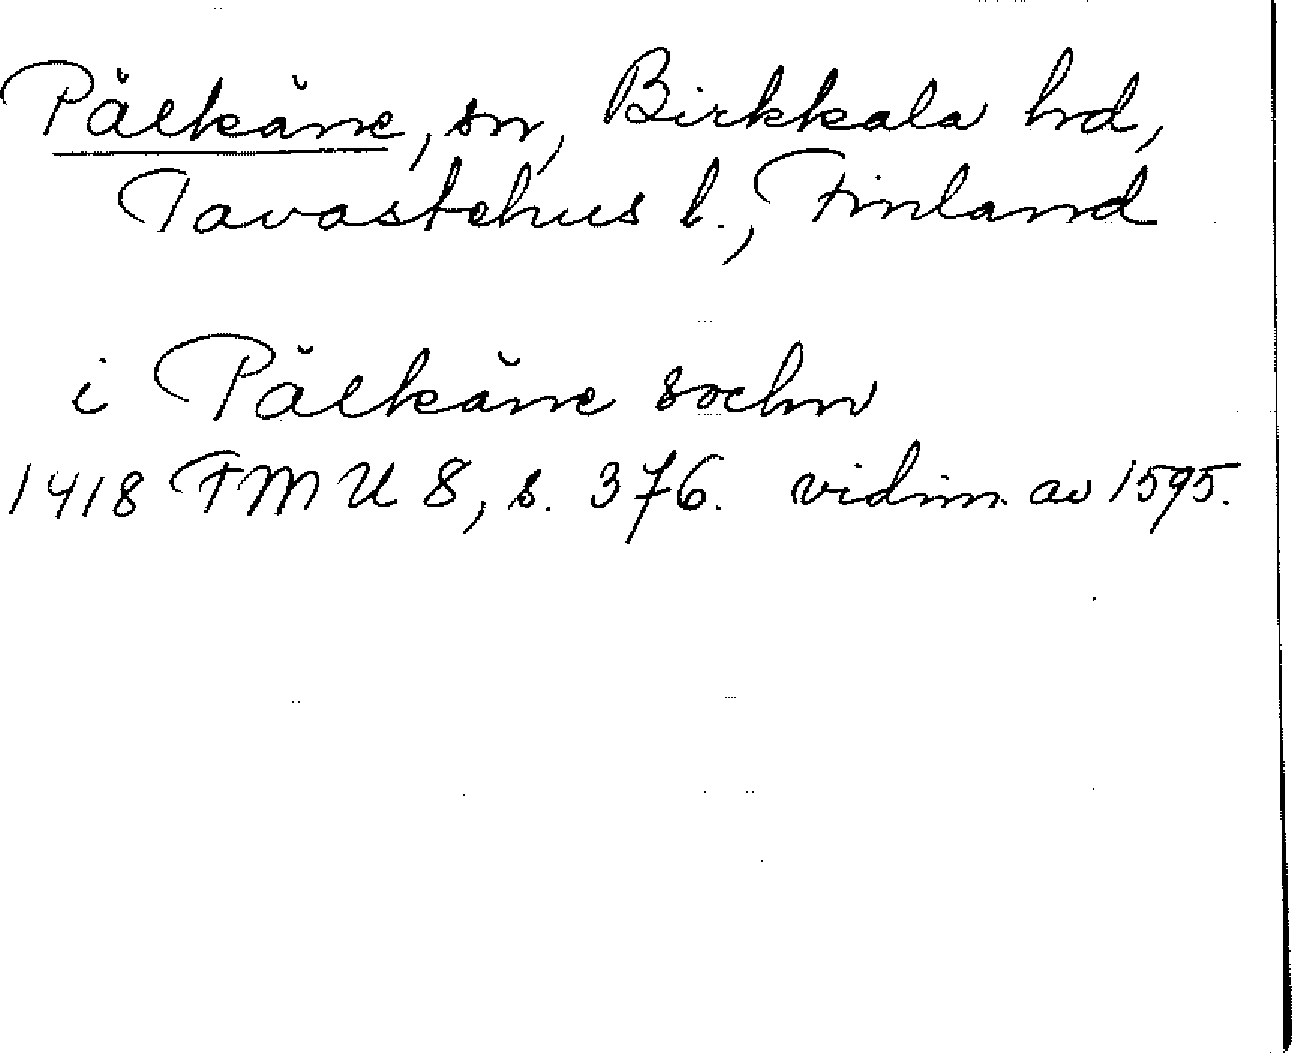 Pälkäne, sn, Birkkala hrd,
Tavastehus l., Finland
i Pälkäne sochn
1418 FMU 8, s. 376. vidim. av 1595.